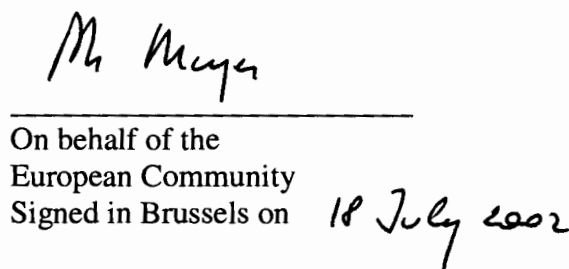 On behalf of the
European Community
Signed in Brussels on 18 July 2002